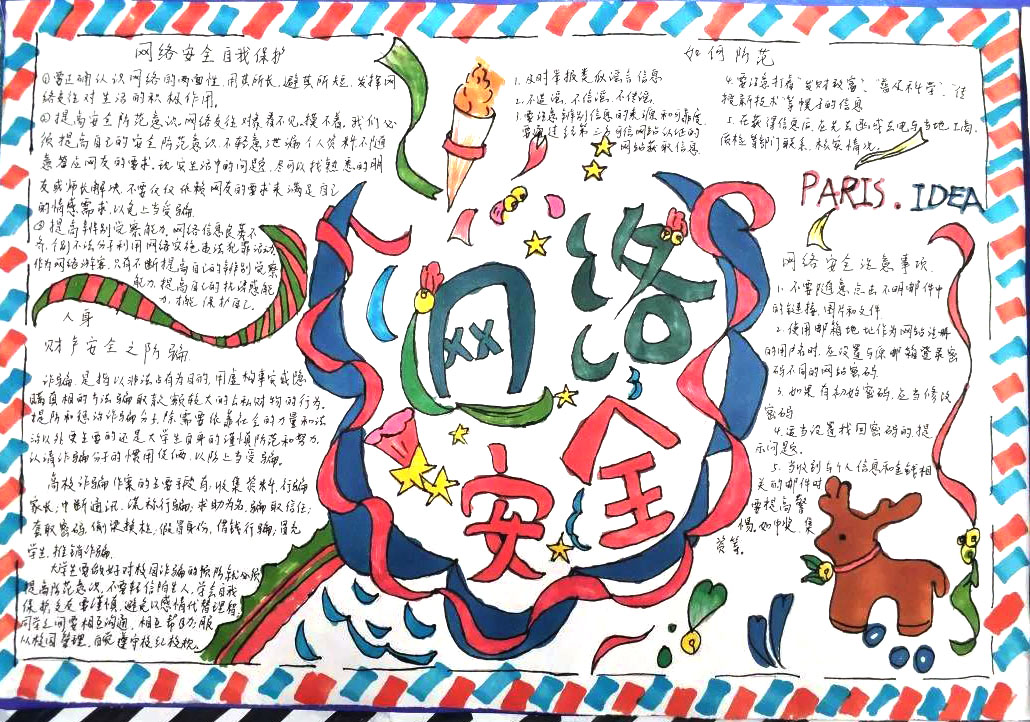 网络安全自我保护
①要正确认识网络的两面性,用其所长,避其所短,发挥网
络交往对生活的积极作用。
②提高安全防范意识,网络交往对象看不见,摸不着,我们必
须提高自己的安全防范意识,不轻易泄漏个人资料,不随
意答应网友的要求。现实生活中的问题,尽可以找熟悉的朋
友或师长解决,不要仅仅依赖网友的要求来满足自己
的情感需求,以免上当受骗。
③提高辨别觉察能力,网络信息良莠不
齐,个别不法分子利用网络实施违法犯罪活动
作为网络游客,只有不断提高自己的辨别觉察
能力,提高自己的抗诱惑能
力,才能保护自己
人身
财产安全之防骗
诈骗,是指以非法占有为目的,用虚构事实或隐
瞒真相的方法骗取款额较大的公私财物的行为。
提防和惩治诈骗分子,除需要依靠社会的力量和法
治以外,更主要的还是大学生自身的谨慎防范和努力,
认清诈骗分子的惯用伎俩,以防上当受骗。
高校诈骗作案的主要手段有,收集资料,行骗
家长;中断通讯,谎称行骗;求助为名,骗取信任;
套取密码,偷梁换柱;假冒身份,借钱行骗;冒充
学生,推销诈骗
大学生要做好对校园诈骗的预防就必须
提高防范意识,不要轻信陌生人,学会自我
保护;交友要谨慎,避免以感情代替理智;
同学之间要相互沟通,相互帮助;服
从校园管理,自觉遵守校纪校规。
网络
安全
如何防范
1.及时举报类似谣言信息
2.不造谣,不信谣,不传谣。
3.要注意辨别信息的来源和可靠度,
要通过经第三方可信网站认证的
网站获取信息
4.要注意打着"发财致富"、"普及科学"、"传
授新技术"等幌子的信息
5.在获得信息后,应先去函或去电与当地工商、
质检等部门联系,核实情况。
PARIS.IDEA
网络安全注意事项
1.不要随意点击不明邮件中
的链接、图片和文件
2.使用邮箱地址作为网站注册
的用户名时,应设置与原邮箱登录密
码不同的网站密码
3.如果有初始密码,应当修改
密码
4.适当设置找回密码的提
示问题。
5.当收到与个人信息和金钱相
关的邮件时
要提高警
惕,如中奖、集
资等。